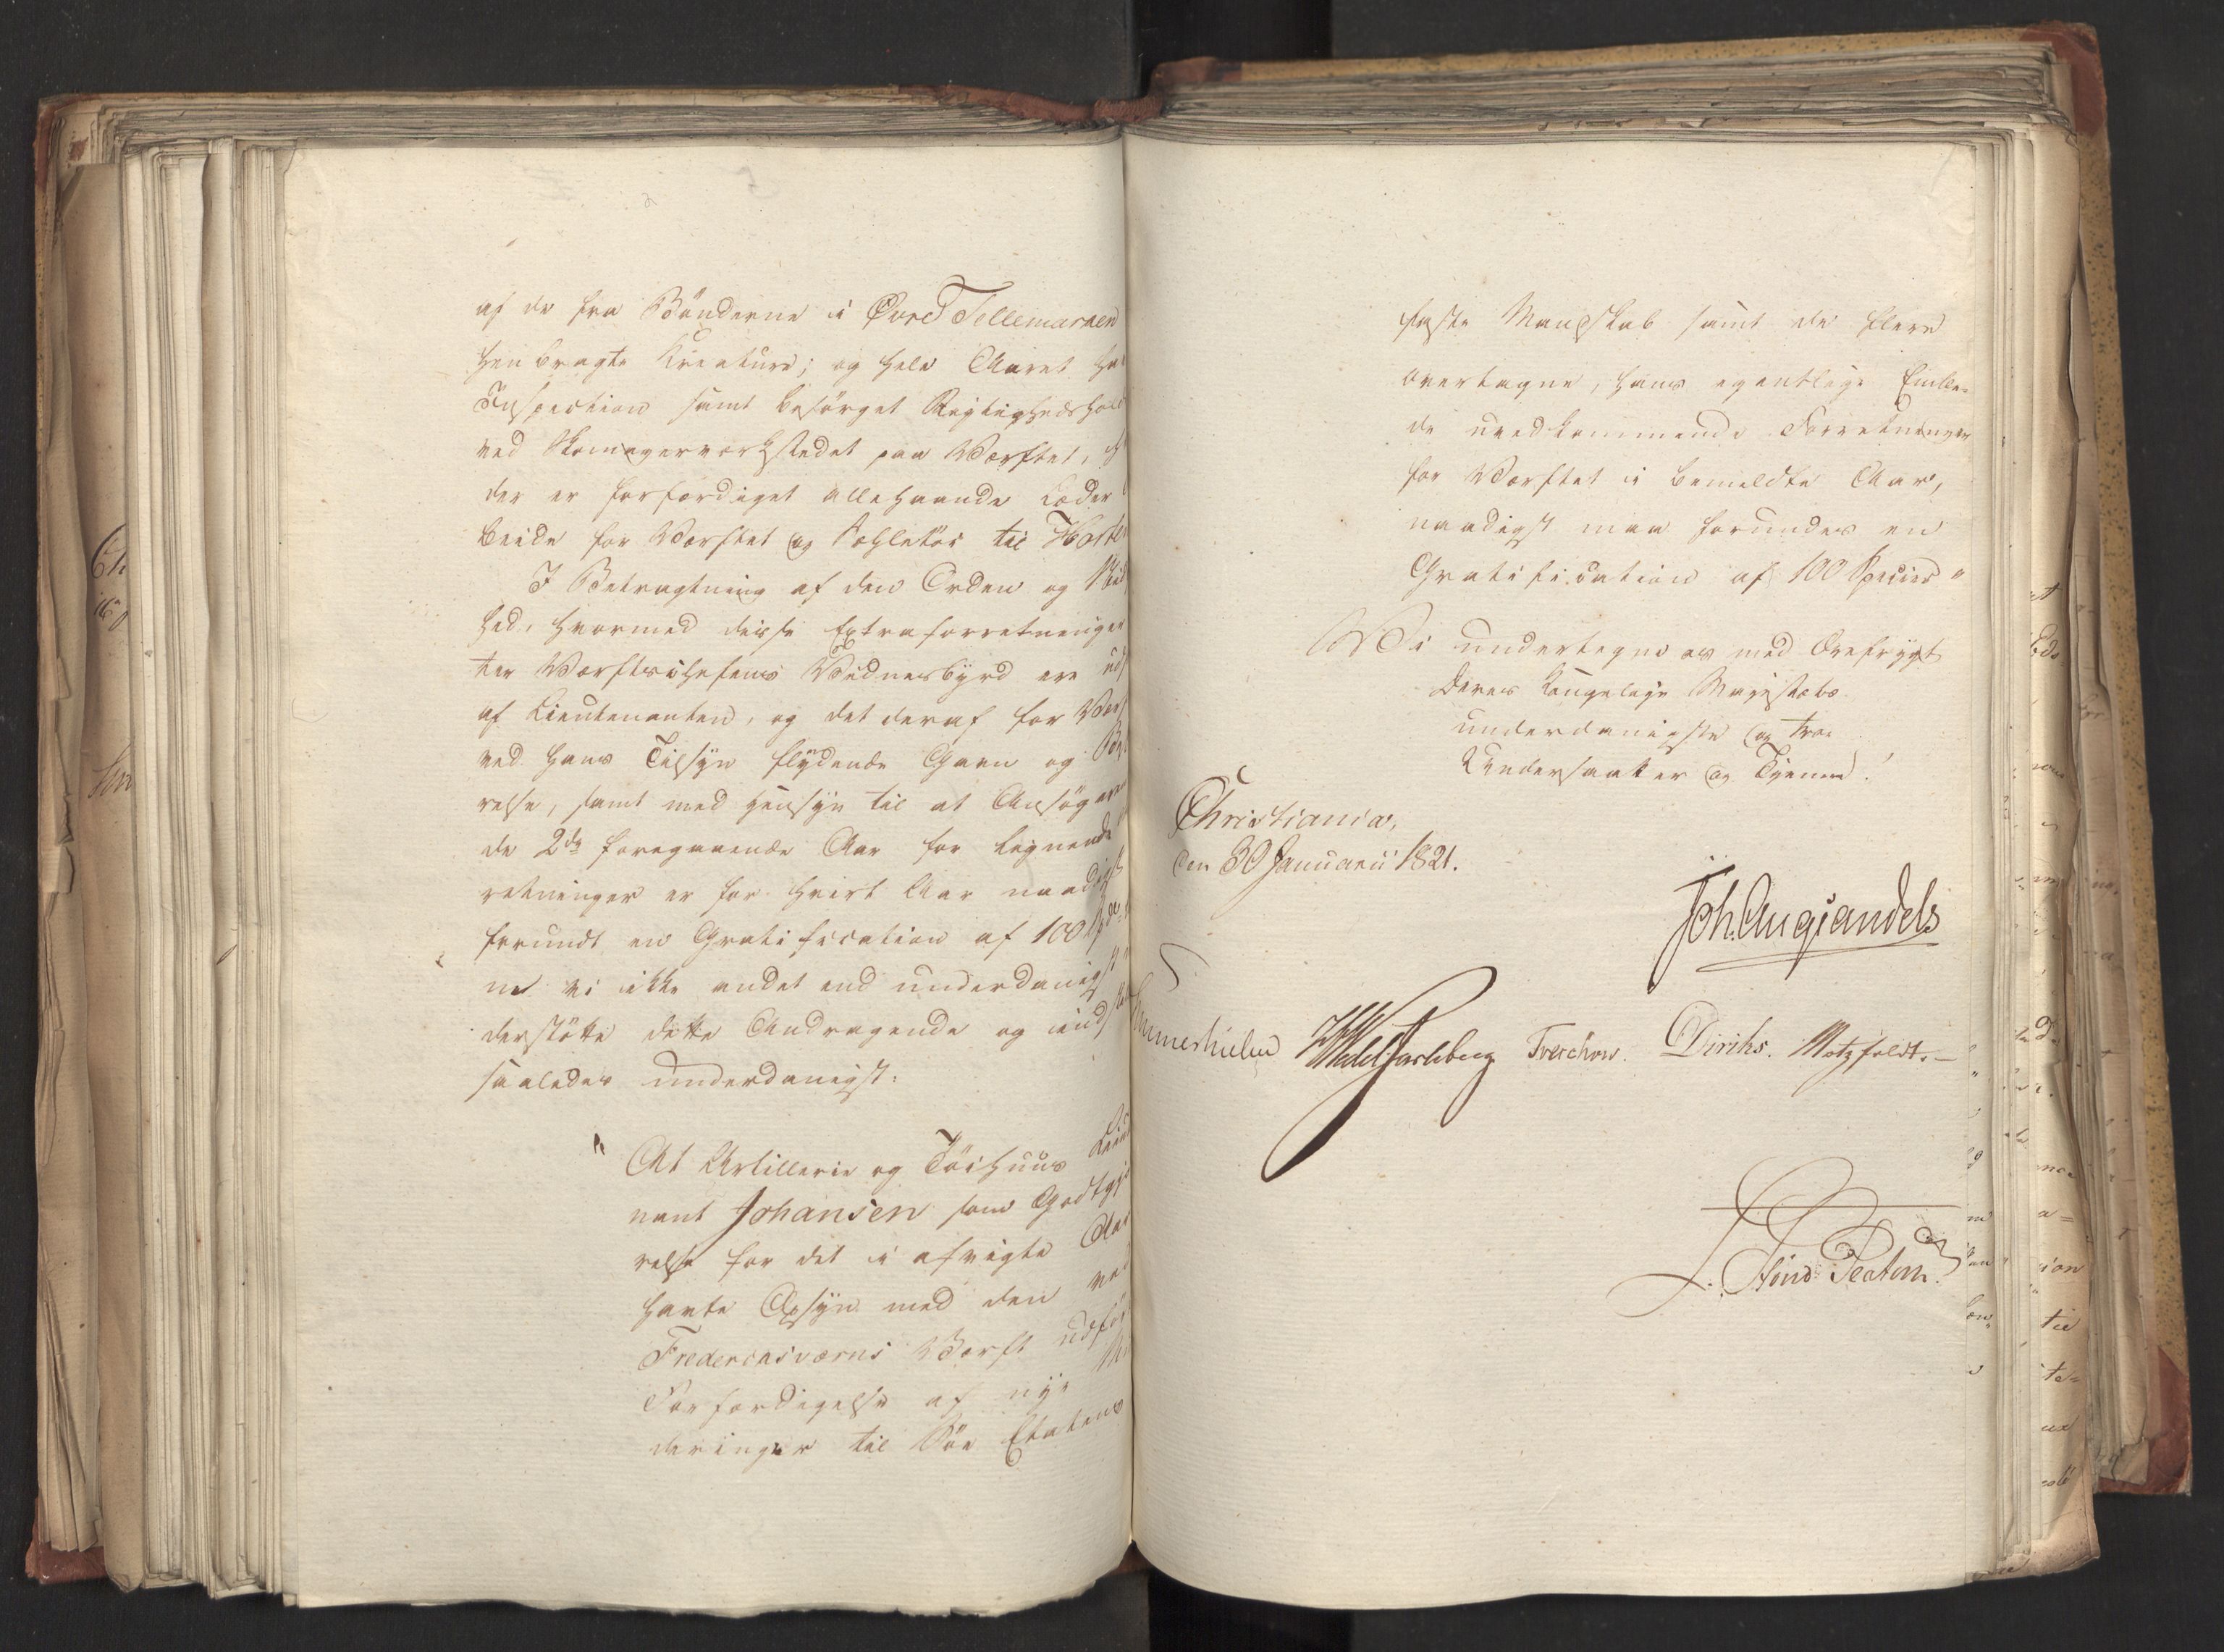 af de fra Bönderne i Övre Tellemarken
henbragte Kreature; og hele Aaret
Inspection samt besörget Rigtighedshol
ved Skomagerværkstedet paa Værftet,
der er forfærdiget allehaande Læder
beide for Værftet og Töi til Horten
I Betragtning af den Orden og
hed, hvormed disse Extraforretninger
ter Værftschefens Vidnesbyrd ere ud
af Lieutenanten, og det deraf for Værf
ved hans Tilsyn flydende Gavn og
relse, samt med Hensyn til at Ansögeren
de 2de foregaaende Aar for lignende
retninger er for hvert Aar naadigst
forundt en Gratification af 100 Spdlr
ne vi ikke andet end underdanigst
derstötte dette Andragende og ind
saaledes underdanigst:
" At Artillerie og Töihuus Lieut
nant Johansen som Godtgjö
relse for det i afvigte Aar
havte Opsyn med den ved
Fredericsværns Værft udför
Forfærdigelse af nye
deringer til Söe Etatens
faste Mandskab samt de flere
overtagne, hans egentlige Embe-
de uvedkommende Forretninger
for Værftet i bemeldte Aar,
naadigst maa forundes en
Gratification af 100 Species "
Vi undertegne os med Ærefrygt
Deres Kongelige Majestæts
underdanigste og troe
Undersaatter og Tjenere!
Christiania,
den 30 Januarii 1821.
Joh. Aug: Sandels
Sommerhielm HWedel Jarlsberg Treschow. Diriks. Motzfeldt.-